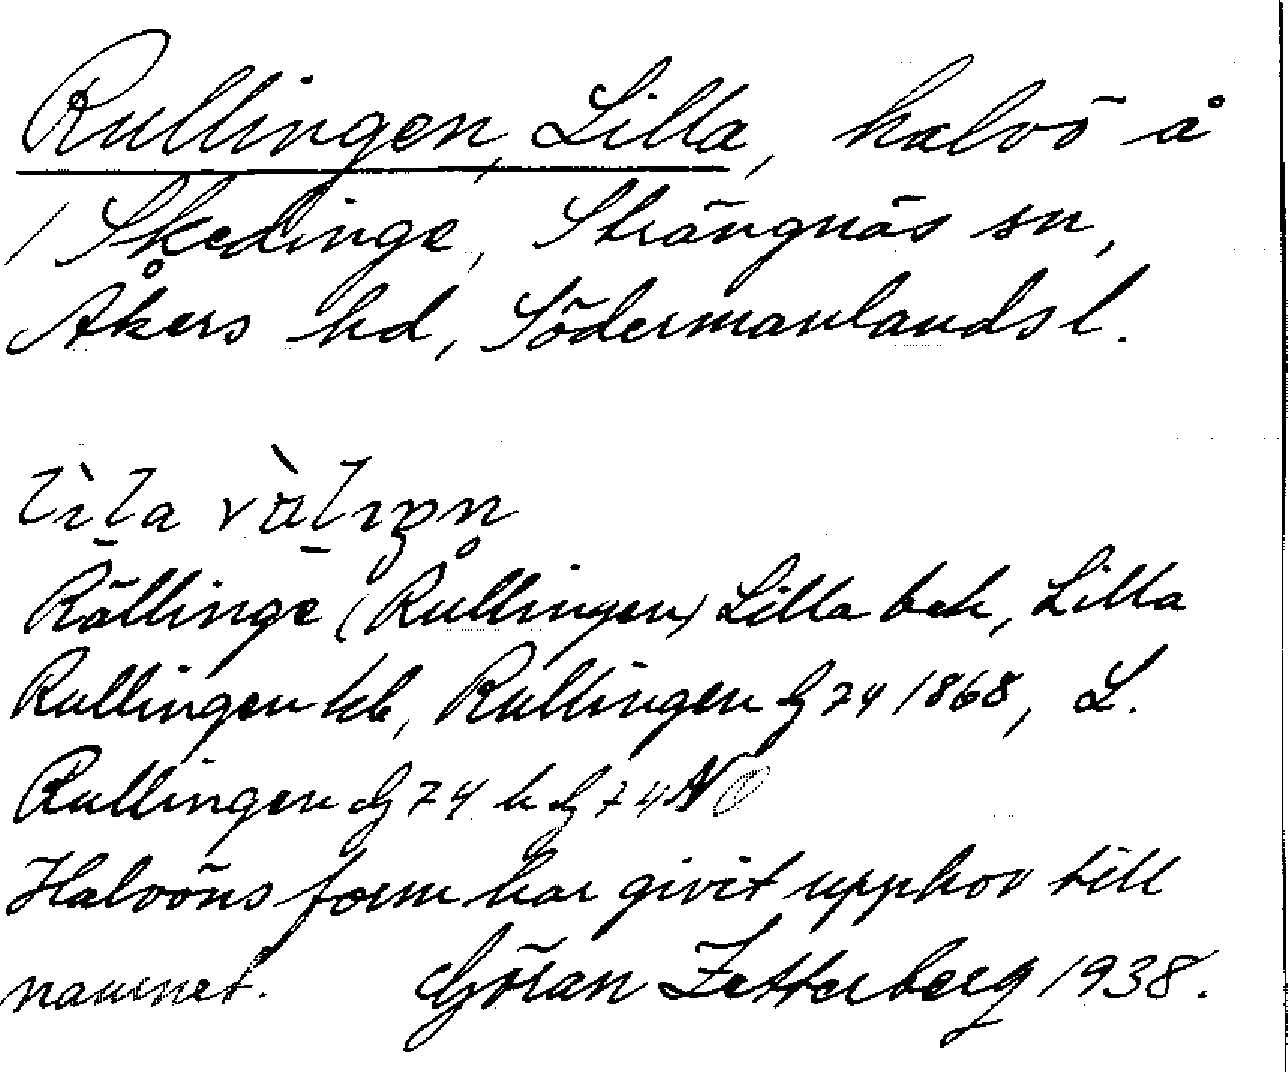 Rullingen, Lilla, halvö å
/ Skedinge, Strängnäs sn,
Åkers hd, Södermanlands l.
Rållinge (Rullingen) Lilla bek, Lilla
Rullingen kb, Rullingen G74 1868, L.
Rullingen G74 G74 NO
Halvöns form har givit upphov till
namnet. Göran Zetterberg 1938.